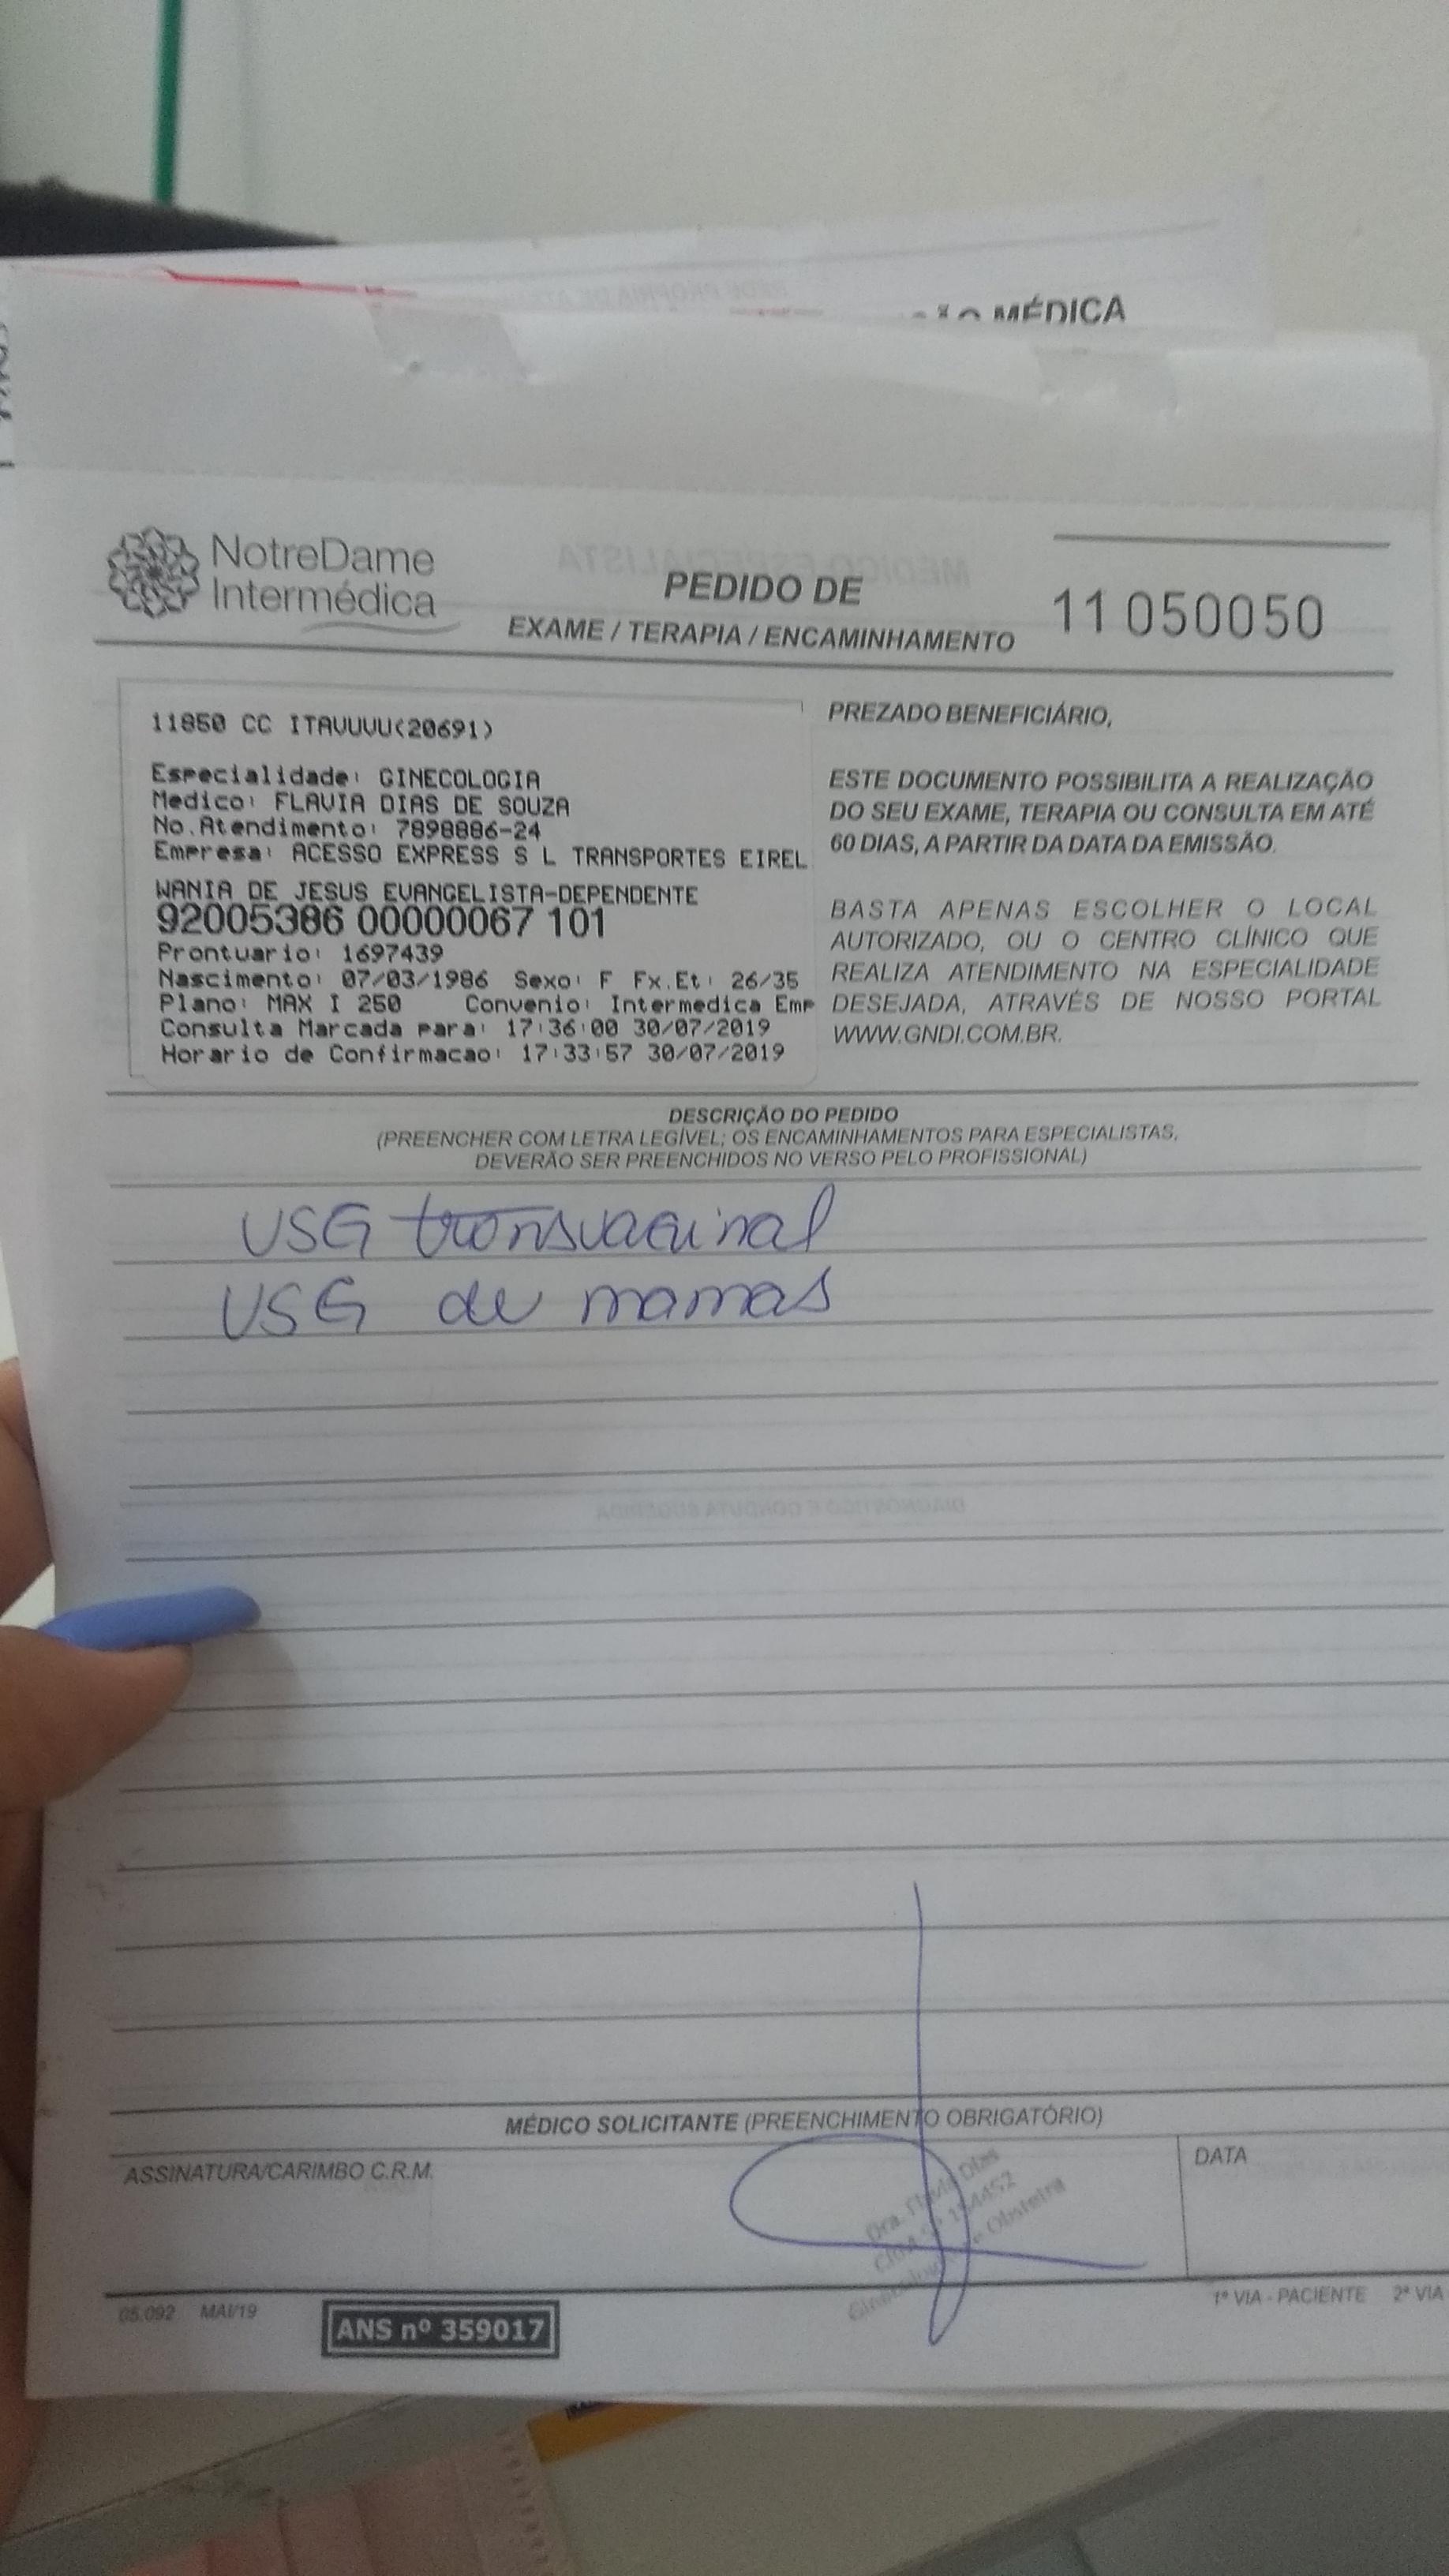 ÃO MÉDICA
NotreDame
Intermédica
PEDIDO DE
EXAME / TERAPIA / ENCAMINHAMENTO
11 050050
11850 CC ITAVUVU(20691)
Especialidade: GINECOLOGIA
Medico: FLAVIA DIAS DE SOUZA
No.Atendimento: 7898886-24
Empresa: ACESSO EXPRESS S L TRANSPORTES EIREL
WANIA DE JESUS EVANGELISTA-DEPENDENTE
92005386 00000067 101
Prontuario: 1697439
Nascimento: 07/03/1986 Sexo: F Fx.Et: 26/35
Plano: MAX I 250 Convenio: Intermedica Emp
Consulta Marcada para: 17:36:00 30/07/2019
Horario de Confirmacao: 17:33:57 30/07/2019
PREZADO BENEFICIÁRIO,
ESTE DOCUMENTO POSSIBILITA A REALIZAÇÃO
DO SEU EXAME, TERAPIA OU CONSULTA EM ATÉ
60 DIAS, A PARTIR DA DATA DA EMISSÃO.
BASTA APENAS ESCOLHER O LOCAL
AUTORIZADO, OU O CENTRO CLÍNICO QUE
REALIZA ATENDIMENTO NA ESPECIALIDADE
DESEJADA, ATRAVÉS DE NOSSO PORTAL
WWW.GNDI.COM.BR.
DESCRIÇÃO DO PEDIDO
(PREENCHER COM LETRA LEGÍVEL; OS ENCAMINHAMENTOS PARA ESPECIALISTAS,
DEVERÃO SER PREENCHIDOS NO VERSO PELO PROFISSIONAL)
USG transvaginal
USG de mamas
MÉDICO SOLICITANTE (PREENCHIMENTO OBRIGATÓRIO)
ASSINATURA/CARIMBO C.R.M.
Dra. Flavia Dias
CRM SP
Obstetra
DATA
05.092 MAI/19
ANS nº 359017
1ª VIA - PACIENTE 2ª VIA